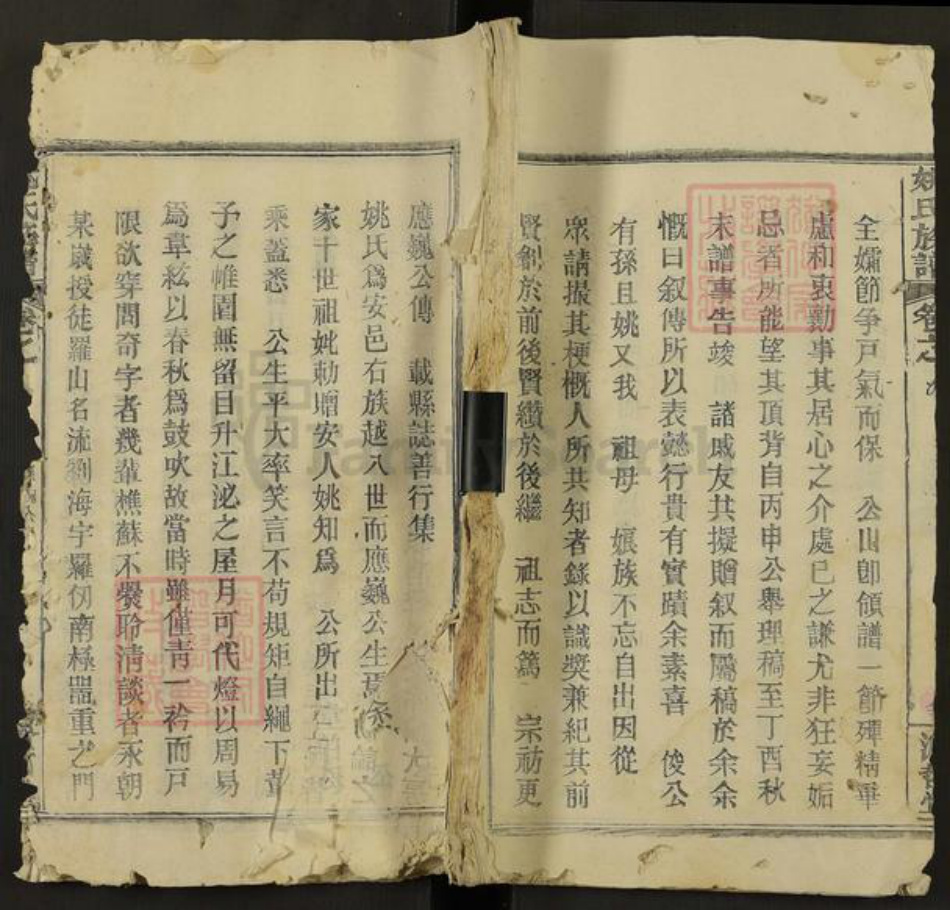 姚氏族譜 卷之
全孀節爭戸氣而保 公山卽領譜一節殫精畢
慮和衷勷事其居心之介處已之謙尤非狂妄妬
忌者所能望其頂背自丙申公舉理稿至丁酉秋
末譜事告竣 諸戚友共擬贈叙而屬稿於余余
慨曰叙傳所以表懿行貴有實蹟余素喜 俊公
有孫且姚又我 祖母 娘族不忘自出因從
眾請撮其梗慨人所共知者錄以識奬兼紀其前
賢創於前後賢纘於後繼 祖志而篤 宗祊更
應巍公傳 載縣誌善行集
姚氏爲安邑右族越八世而應巍公生焉
家十世祖妣勅贈安人姚知爲 公所出
乘蓋悉 公生平大率笑言不苟規矩自繩下董
予之帷園無留目升江泌之屋月可代燈以周易
爲韋絃以春秋爲鼓吹故當時雖僅青一衿而戸
限欲穿問奇字者幾輩樵蘇不爨聆淸談者永朝
某嵗授徒羅山名流劉海宇羅仞南極噐重之門